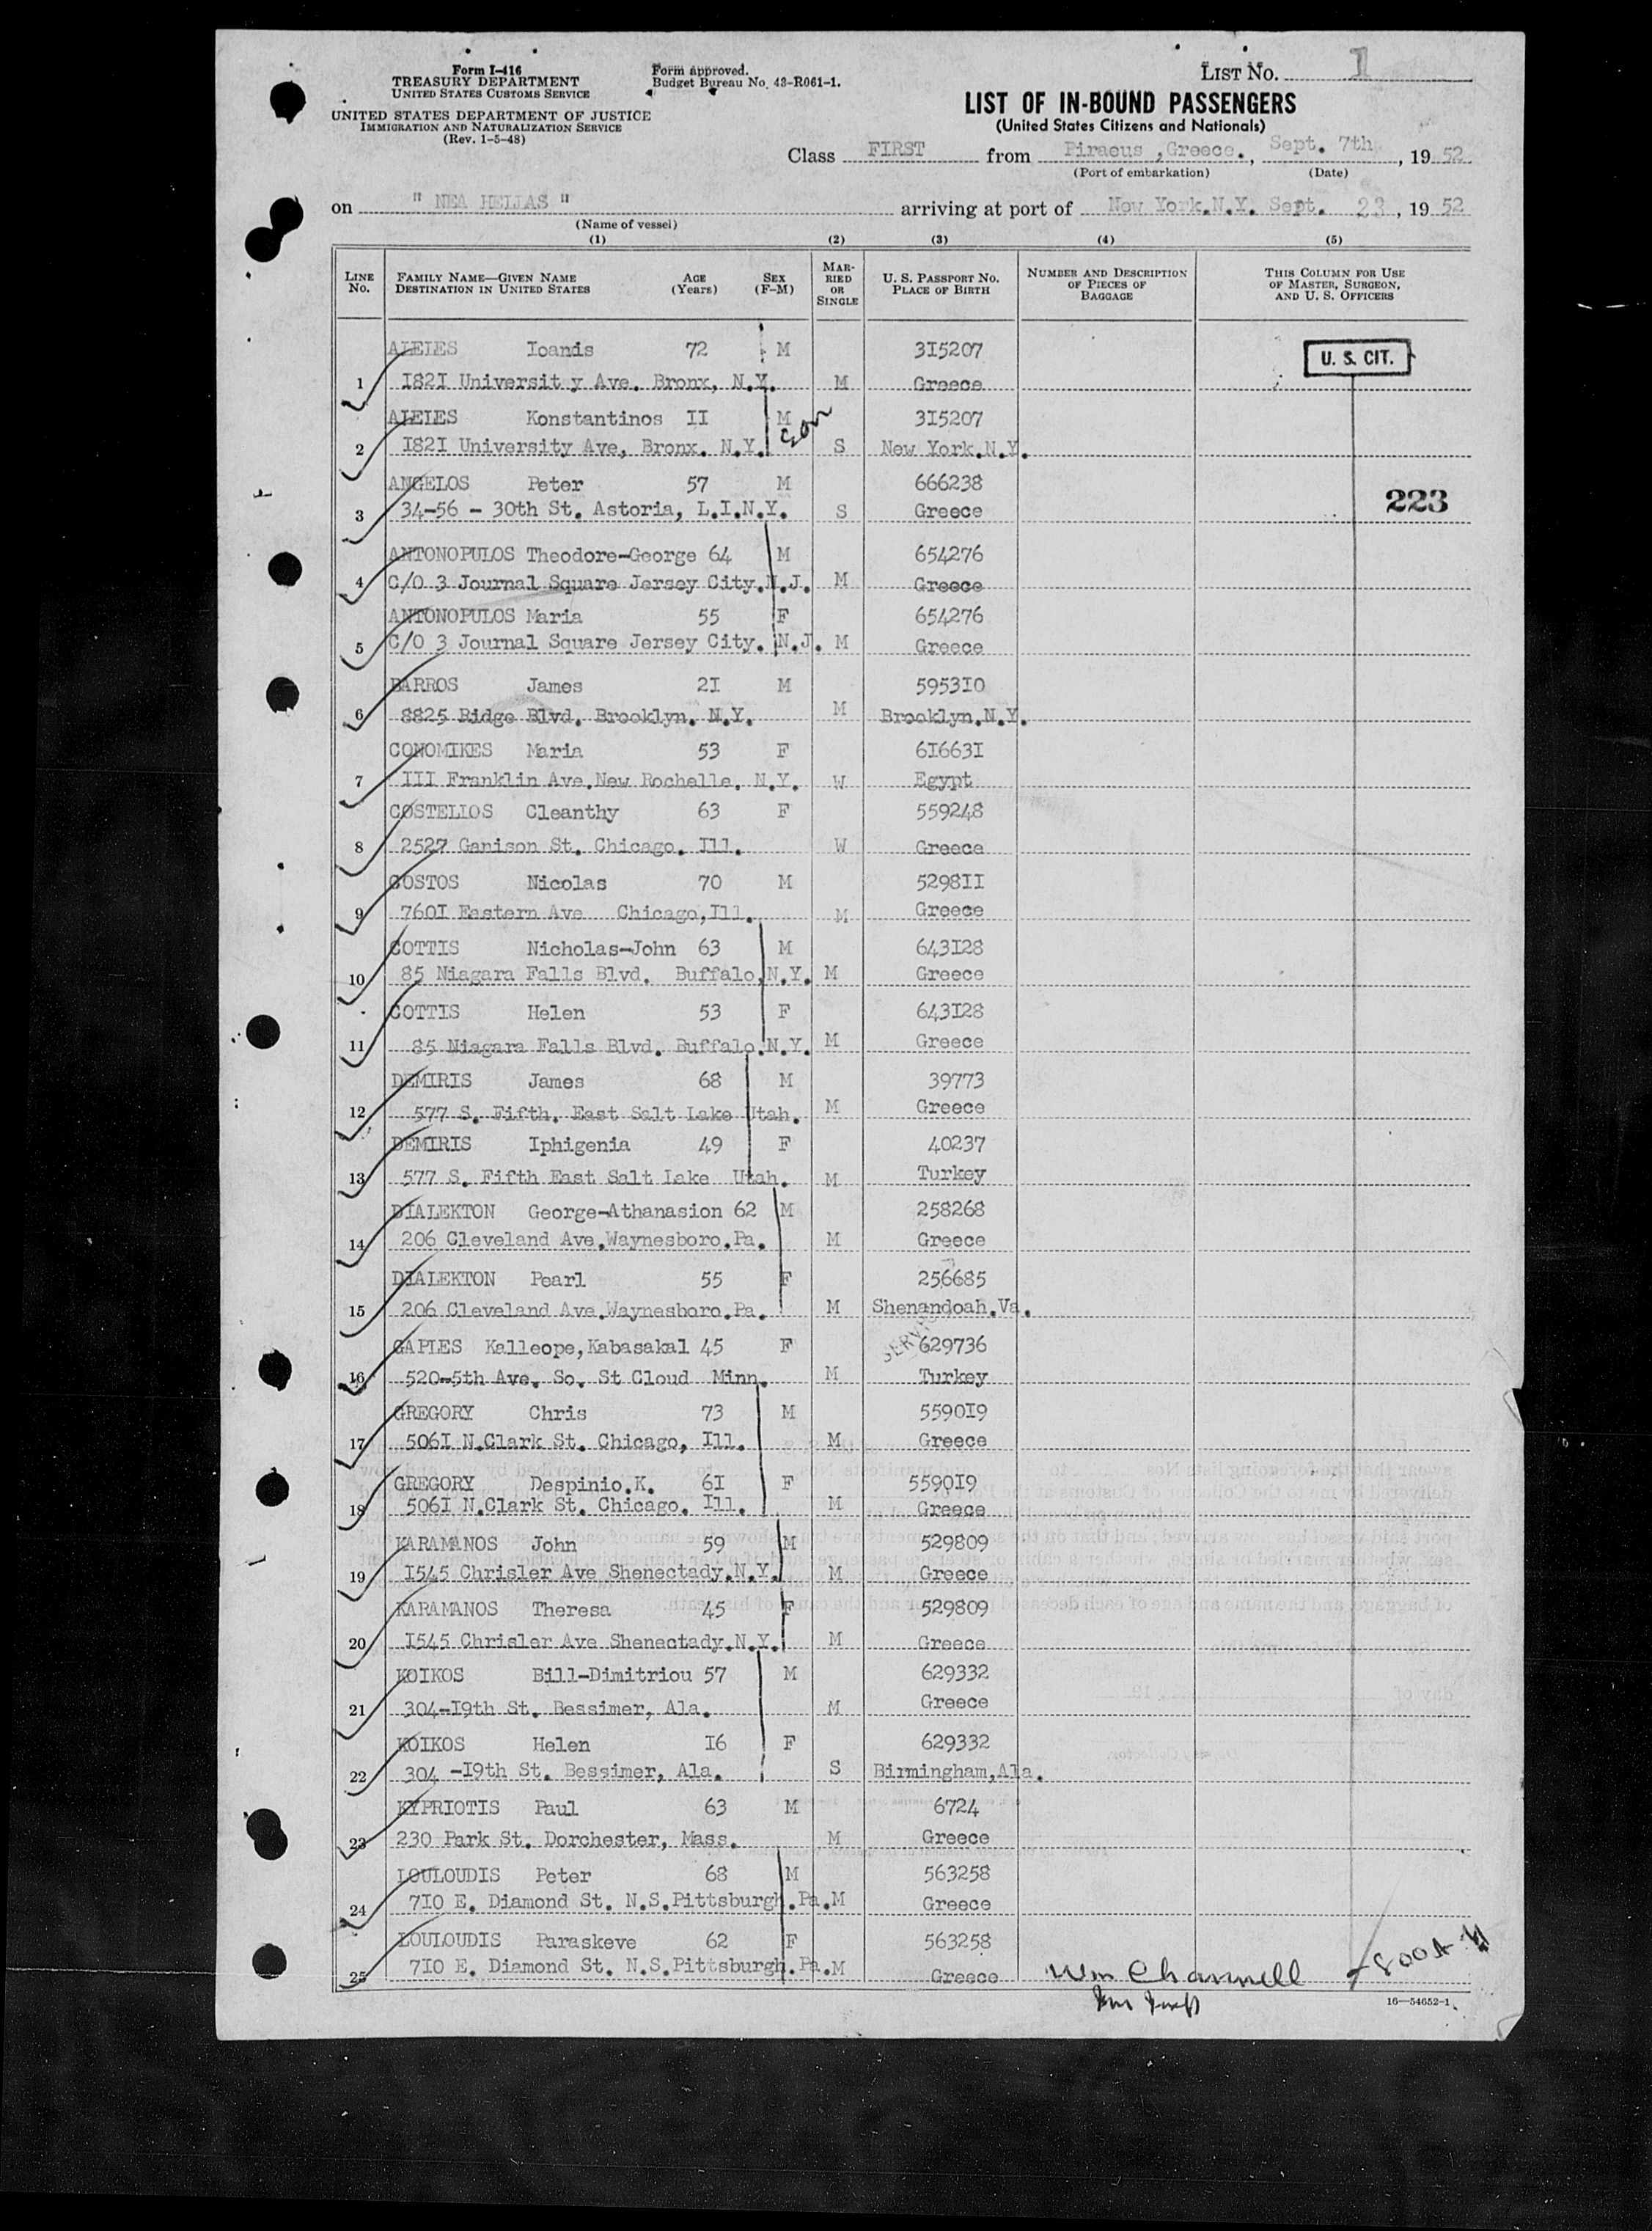 Form I-416
TREASURY DEPARTMENT
UNITED STATES CUSTOMS SERVICE
UNITED STATES DEPARTMENT OF JUSTICE
IMMIGRATION AND NATURALIZATION SERVICE
(Rev. 1-5-48)
Form approved.
Budget Bureau No. 43-R061-1.
LIST NO. 1
LIST OF IN-BOUND PASSENGERS
(United States Citizens and Nationals)
Class FIRST from Piraeus ,Greece., Sept. 7th, 19 52
(Port of embarkation) (Date)
on " NEA HELLAS " arriving at port of New York.N.Y. Sept. 23, 19 52
(Name of vessel)
(1) (2) (3) (4) (5)
LINE NO. FAMILY NAME—GIVEN NAME DESTINATION IN UNITED STATES AGE (Years) SEX (F-M) MARRIED OR SINGLE U. S. PASSPORT NO. PLACE OF BIRTH NUMBER AND DESCRIPTION OF PIECES OF BAGGAGE THIS COLUMN FOR USE OF MASTER, SURGEON, AND U. S. OFFICERS
ALEIES Ioanis 72 M 3I5207 U. S. CIT.
1 I82I University Ave. Bronx, N.Y. M Greece
ALEIES Konstantinos II M son 3I5207
2 I82I University Ave, Bronx. N.Y. S New York.N.Y.
ANGELOS Peter 57 M 666238 223
3 34-56 - 30th St. Astoria, L.I.N.Y. S Greece
ANTONOPULOS Theodore-George 64 M 654276
4 C/O 3 Journal Square Jersey City.N.J. M Greece
ANTONOPULOS Maria 55 F 654276
5 C/O 3 Journal Square Jersey City. N.J. M Greece
BARROS James 2I M 5953I0
6 8825 Ridge Blvd. Brooklyn. N.Y. M Brooklyn.N.Y.
CONOMIKES Maria 53 F 6I663I
7 III Franklin Ave.New Rochelle. N.Y. W Egypt
COSTELIOS Cleanthy 63 F 559248
8 2527 Ganison St. Chicago. Ill. W Greece
COSTOS Nicolas 70 M 5298II
9 760I Eastern Ave Chicago,Ill. M Greece
COTTIS Nicholas-John 63 M 643I28
10 85 Niagara Falls Blvd. Buffalo.N.Y. M Greece
COTTIS Helen 53 F 643I28
11 85 Niagara Falls Blvd. Buffalo.N.Y. M Greece
DEMIRIS James 68 M 39773
12 577 S. Fifth. East Salt Lake Utah. M Greece
DEMIRIS Iphigenia 49 F 40237
13 577 S. Fifth East Salt Lake Utah. M Turkey
DIALEKTON George-Athanasion 62 M 258268
14 206 Cleveland Ave.Waynesboro.Pa. M Greece
DIALEKTON Pearl 55 F 256685
15 206 Cleveland Ave.Waynesboro.Pa. M Shenandoah.Va.
GAPLES Kalleope,Kabasakal 45 F 629736
16 520-5th Ave. So. St Cloud Minn. M Turkey
GREGORY Chris 73 M 5590I9
17 506I N.Clark St. Chicago, Ill. M Greece
GREGORY Despinio.K. 6I F 5590I9
18 506I N.Clark St. Chicago. Ill. M Greece
KARAMANOS John 59 M 529809
19 I545 Chrisler Ave Shenectady.N.Y. M Greece
KARAMANOS Theresa 45 F 529809
20 I545 Chrisler Ave Shenectady.N.Y. M Greece
KOIKOS Bill-Dimitriou 57 M 629332
21 304-I9th St. Bessimer, Ala. M Greece
KOIKOS Helen I6 F 629332
22 304 -I9th St. Bessimer, Ala. S Birmingham,Ala.
KYPRIOTIS Paul 63 M 6724
23 230 Park St. Dorchester, Mass. M Greece
LOULOUDIS Peter 68 M 563258
24 7I0 E. Diamond St. N.S.Pittsburgh.Pa.M Greece
LOULOUDIS Paraskeve 62 F 563258
25 7I0 E. Diamond St. N.S.Pittsburgh.Pa.M Greece Wm Channell
16—54652-1